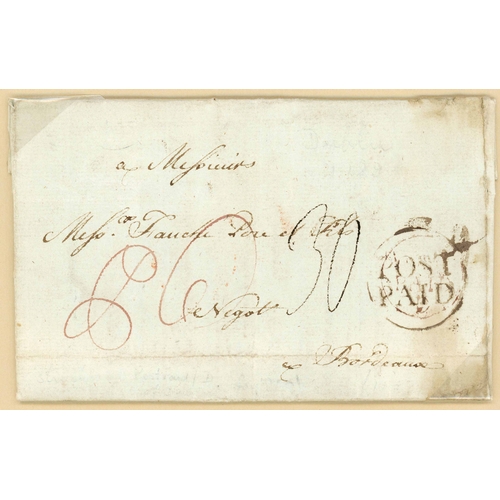 a Messieurs
Mess.rs Fauché Pere et Fils
Negots
a Bordeaux
30
POST
PAID